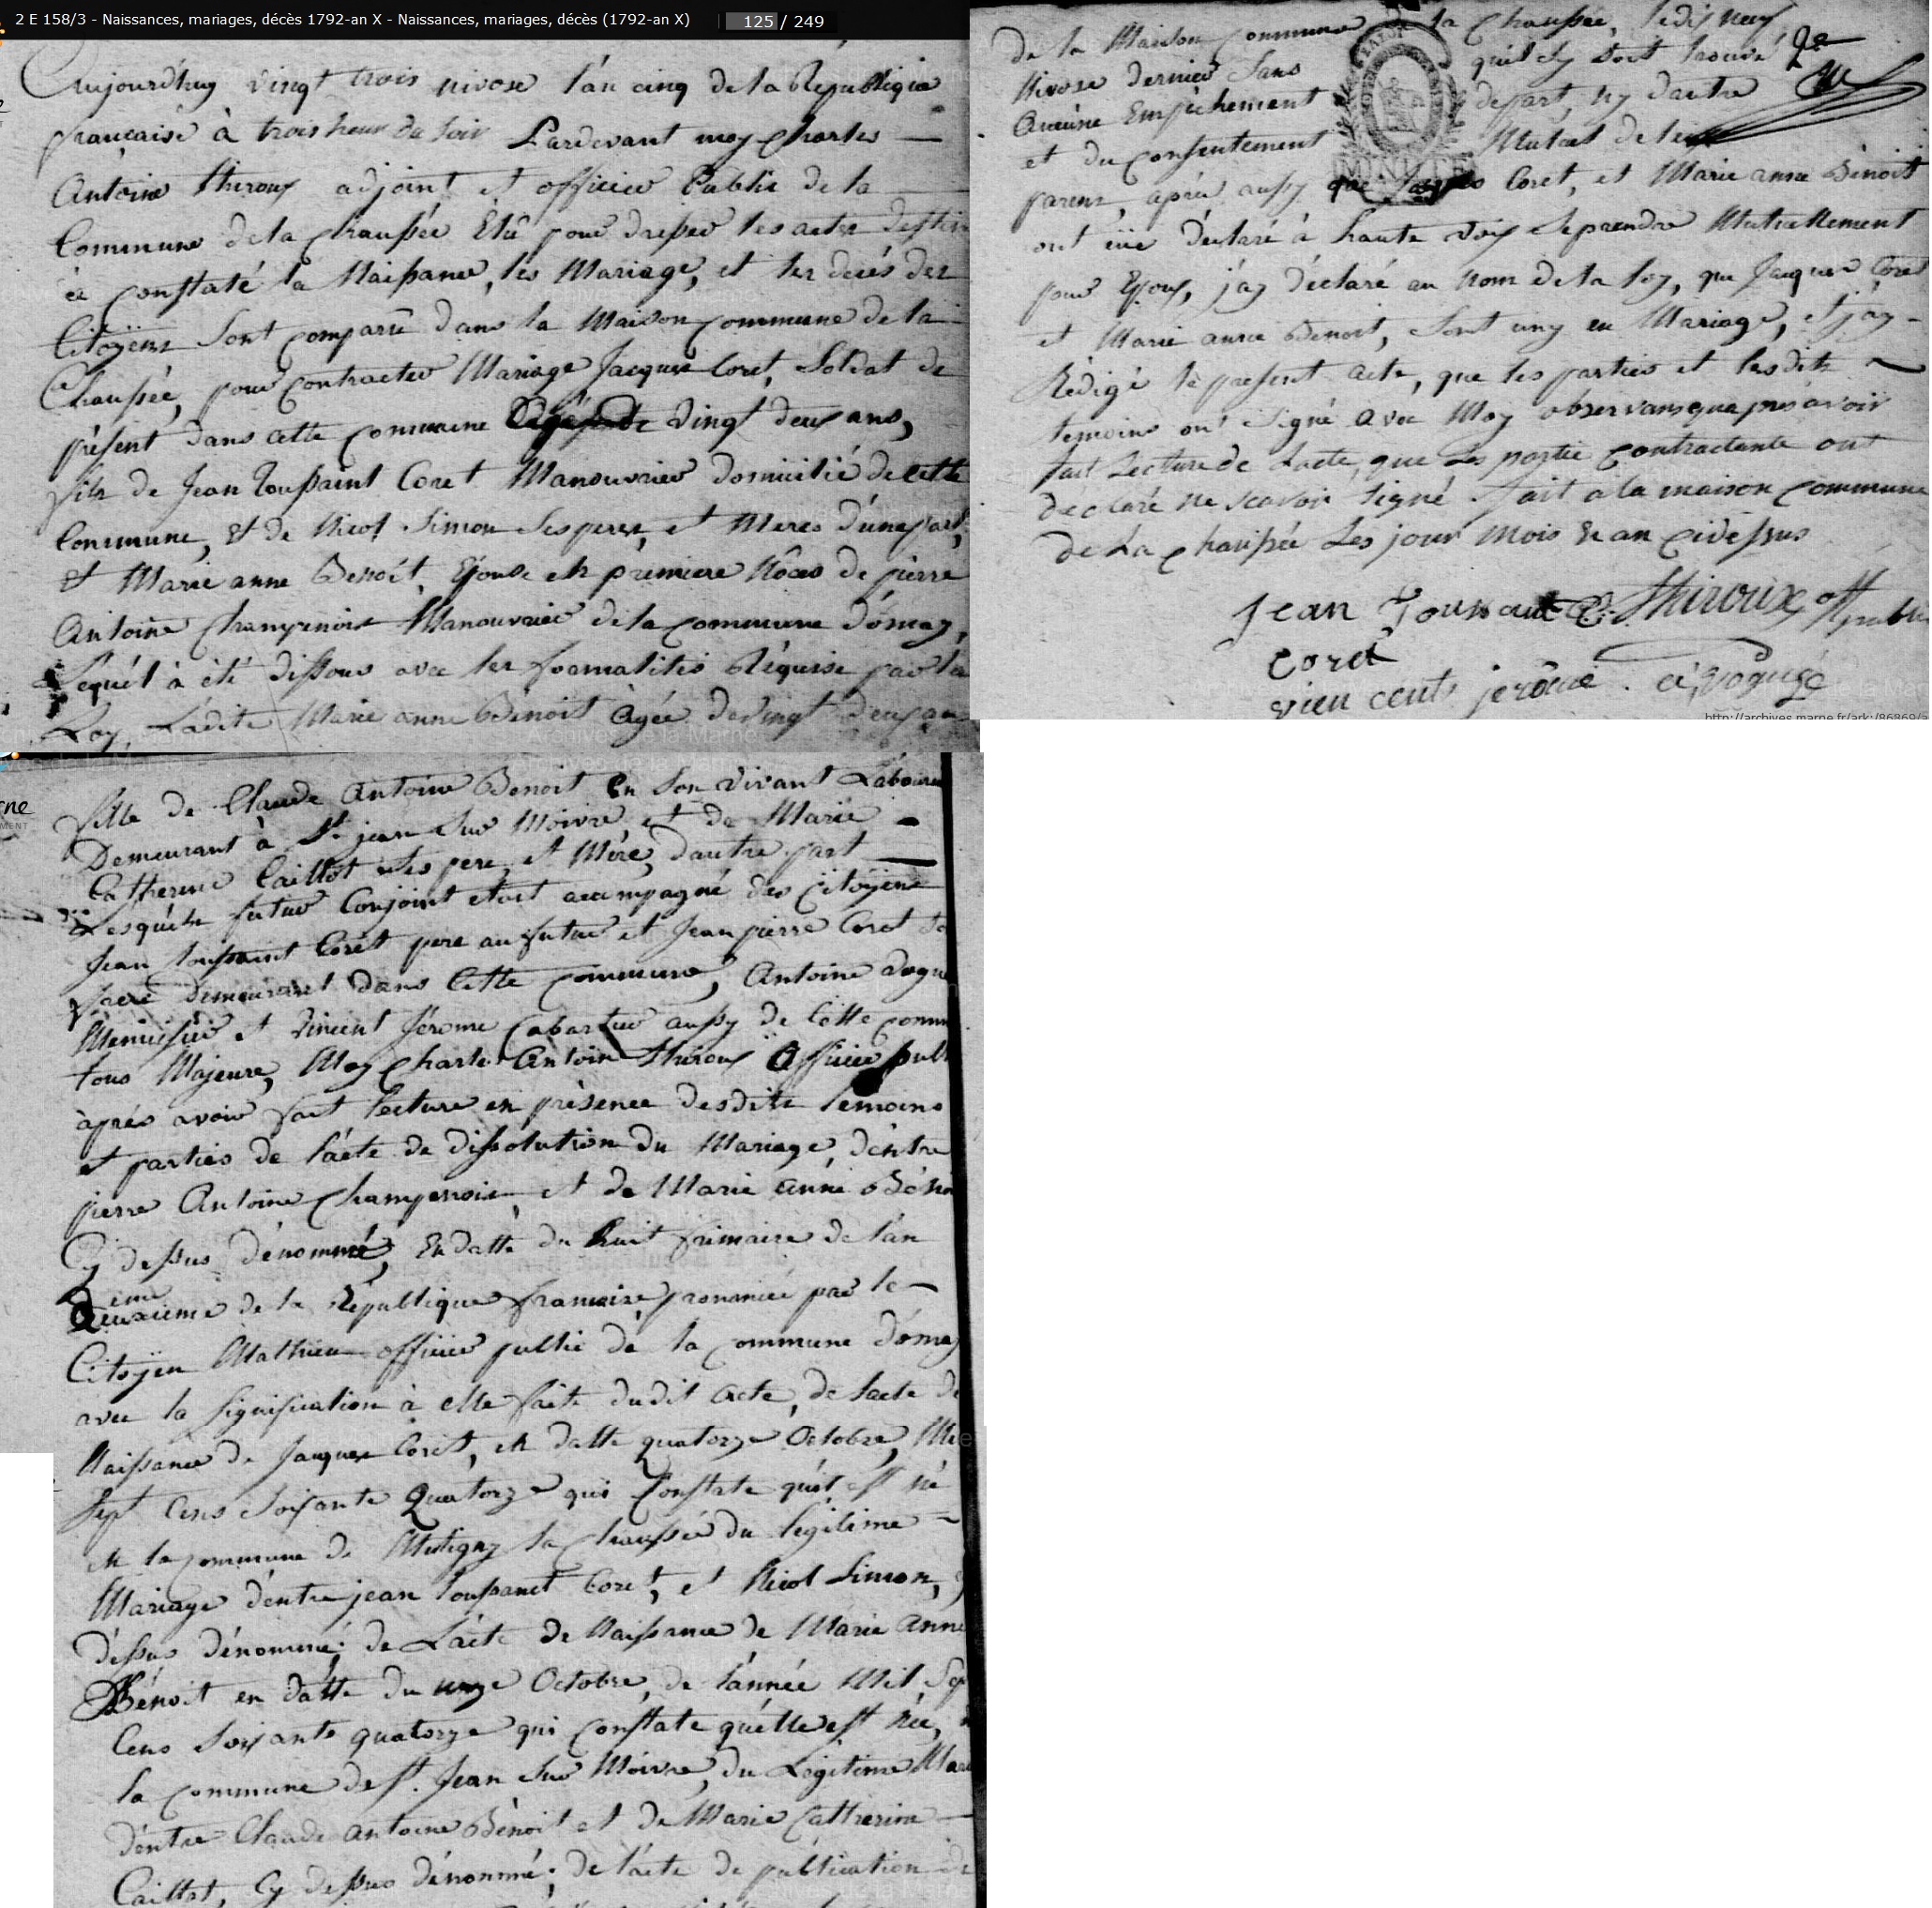 2 E 158/3 - Naissances, mariages, décès 1792-an X - Naissances, mariages, décès (1792-an X) 125 / 249
Aujourdhuy vingt trois nivose l'an cinq de la Republique
française à trois heur du soir Pardevant moy Charles
Antoine thiroux adjoint et officier Public de la
Commune de la chaussée Elû pour dresser les actes destin
éé constaté la Naissance, les Mariage, et les decés des
Citoÿens Sont comparû dans la Maison commune de la
Chaussée, pour contracter Mariage Jacques Coret, Soldat de
présent dans cette commune vingt deux ans,
fils de Jean Toussaint Coret Manouvrier domicilié de cette
Commune, et de Nicol Simon ses peres, et Meres d'une part,
et Marie anne Benoît, Epouse en premiere Nôces de pierre
Antoine Champenois Manouvrier de la commune d'omey,
Lequel à été dissous avec les formalités Réquise par la
Loy, Ladite Marie anne Bénoit âgée de vingt deux an
fille de Claude Antoine Benoit En Son vivant Laboureu
Demeurant à St jean Sur Moivre, et de Marie
Catherine Caillot Ses pere, et Mére, d'autre part
Lesquéls futur Conjoint etoit accompagné des Citoÿens
Jean Toussaint Corét pere au futur et Jean pierre Coret
frere Demeurant dans cette commune, Antoine
Menuisier et Vincent Jérome Cabartier aussy de cette comm
tous Majeure, Moy Charles Antoin thiroux Officier publ
àprés avoir fait lecture en présence desdits temoins
et parties de l'acte de dissolution du Mariage, d'éntre
pierre Antoine Champenois, et de Marie anné Béno
Cy dessus dénommé, En datte du huit frimaire de l'an
eme
deuxieme de la République francaise prononcée par le
Citoÿen Mathieu officier public dé la commune d'omey
avec la signification à elle faite dudit acte, de l'acte de
Naissance de Jacques Corét, en datte quatorze Octobre, Mi
Sept Cens Soixante Quatorze qui Constate quil est né
en la commune de Mutigny la Chaussée du légitime
Mariage d'éntre jean toussanct Coret, et Nicol Simon,
dessus dénommé; de L'acte de Naissance de Marie Anne
Bénoit en datte du unze Octobre, de l'année Mil Sep
Cens Soixante quatorze qui constate qu'élle est née,
la commune de St. Jean Sur Moivre, du Légitime Mar
d'éntre Claude antoine Bénoit et de Marie Catherine
Caillot, Cy dessus dénommé; de l'acte de publication
de la Maison commune la Chaussée, le dix neuf
Nivose dernier Sans qu'il sy soit trouvé
Aucune Empêchement depart, ny dautre
et du consentement Mutuel de leur
parens, après aussy que Coret, et Marie anne Benoit
ont déclaré à haute voix se prendre Mutuellement
pour Epoux, j'ay déclaré au Nom de la loy, que Jacques Coret
et Marie anne Benoit, Sont uny en Mariage, et j'ay
Rédigé le présent acte, que les parties et lesdits
temoins ont Signé avec Moy observans qu'aprés avoir
fait Lecture de Lacte, que Les partie contractante ont
déclaré ne scavoir signé fait à la maison commune
de La chaussée Les jour mois et an cidessus
Jean Toussaint C. Thiroux off public
coret
vien cent jerôme. a, 
http://archives.marne.fr/ark:/86869/